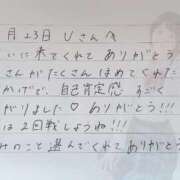 月23日 Uさんへ
いに来てくれてありがとう
さんがたくさんほめてくれた
かげで、自己肯定感 すごく
がりました♡ ありがとう!!!
は2回戦しようね!!!
みのこと選んでくれてありがとう